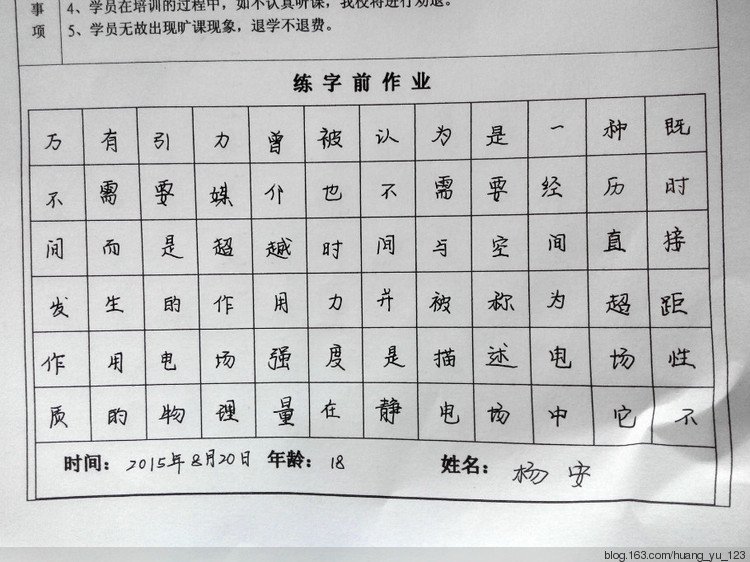 事
项
4、学员在培训的过程中，如不认真听课，我校将进行劝退。
5、学员无故出现旷课现象，退学不退费。
练字前作业
万有引力曾被认为是一种既
不需要媒介也不需要经历时
间而是超越时间与空间直接
发生的作用力并被称为超距
作用电场强度是描述电场性
质的物理量在静电场中它不
时间：2015年8月20日 年龄：18 姓名：杨安
blog.163.com/huang_yu_123